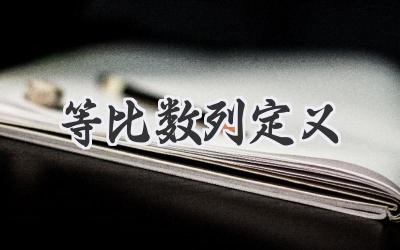 等比数列定义